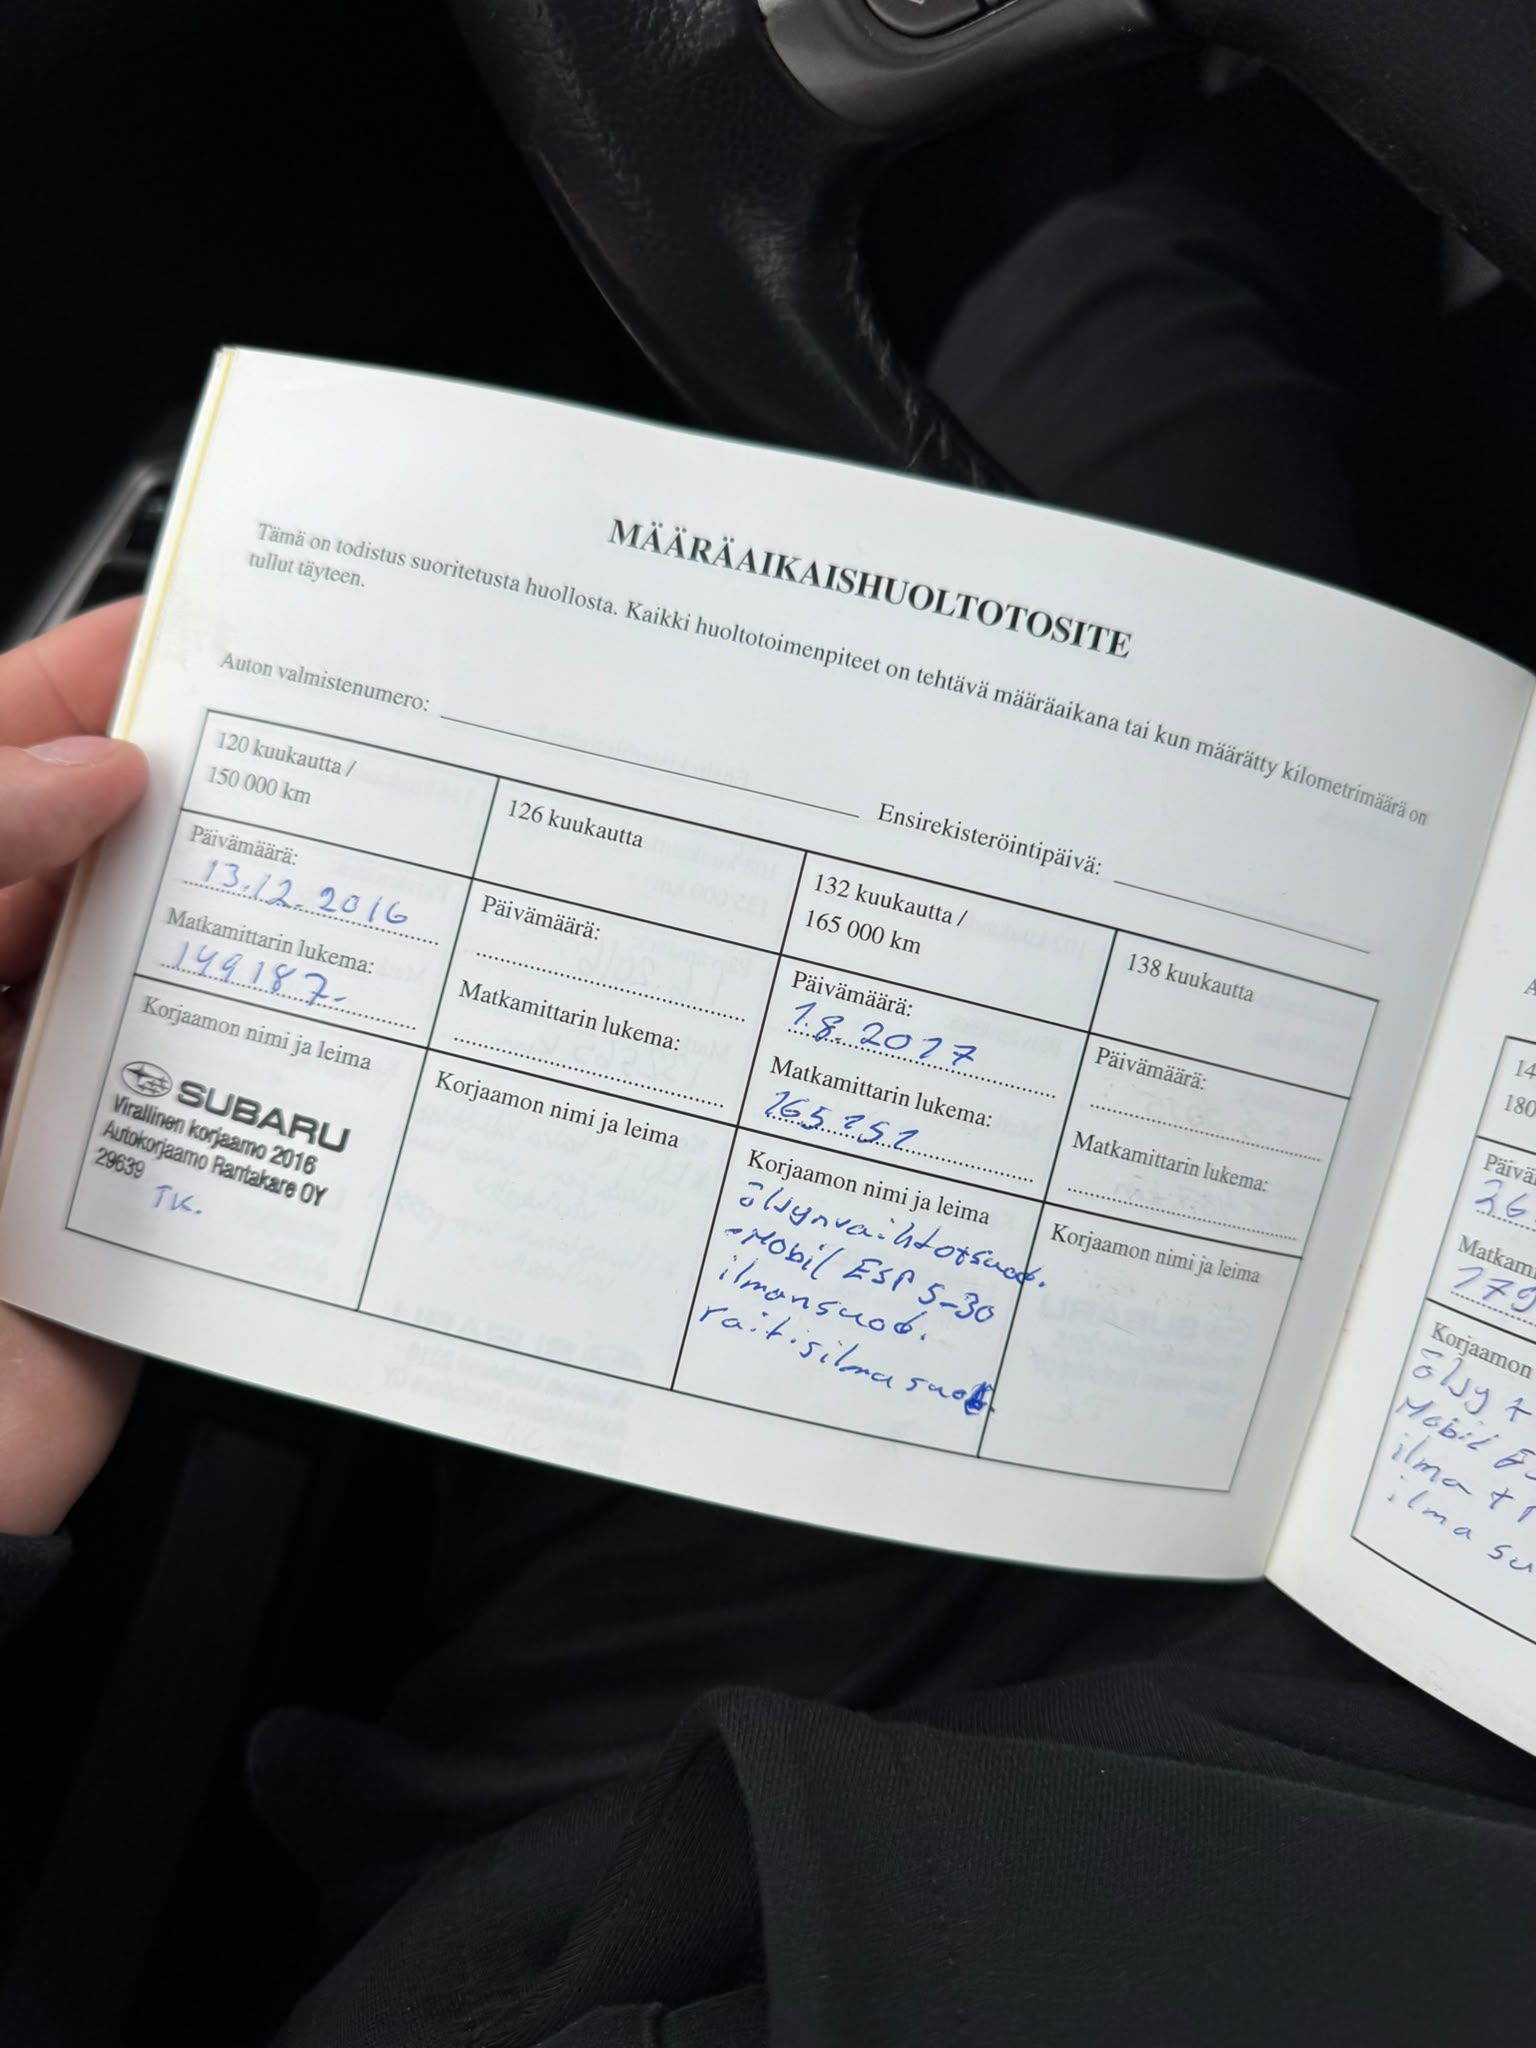 MÄÄRÄAIKAISHUOLTOTOSITE
Tämä on todistus suoritetusta huollosta. Kaikki huoltotoimenpiteet on tehtävä määräaikana tai kun määrätty kilometrimäärä on
tullut täyteen.
Auton valmistenumero:
Ensirekisteröintipäivä:
120 kuukautta /
150 000 km
Päivämäärä:
13.12.2016
Matkamittarin lukema:
149187.-
Korjaamon nimi ja leima
SUBARU
Virallinen korjaamo 2016
Autokorjaamo Rantakare OY
29639
TK.
126 kuukautta
Päivämäärä:
Matkamittarin lukema:
Korjaamon nimi ja leima
132 kuukautta /
165 000 km
Päivämäärä:
1.8.2017
Matkamittarin lukema:
165151
Korjaamon nimi ja leima
öljynvaihto+suod.
-Mobil ESP 5-30
ilmansuod.
raitisilma suod.
138 kuukautta
Päivämäärä:
Matkamittarin lukema:
Korjaamon nimi ja leima
14
180
Päivä
26.
Matkam
179
Korjaamon
öljy +
Mobil
ilma +
ilma su